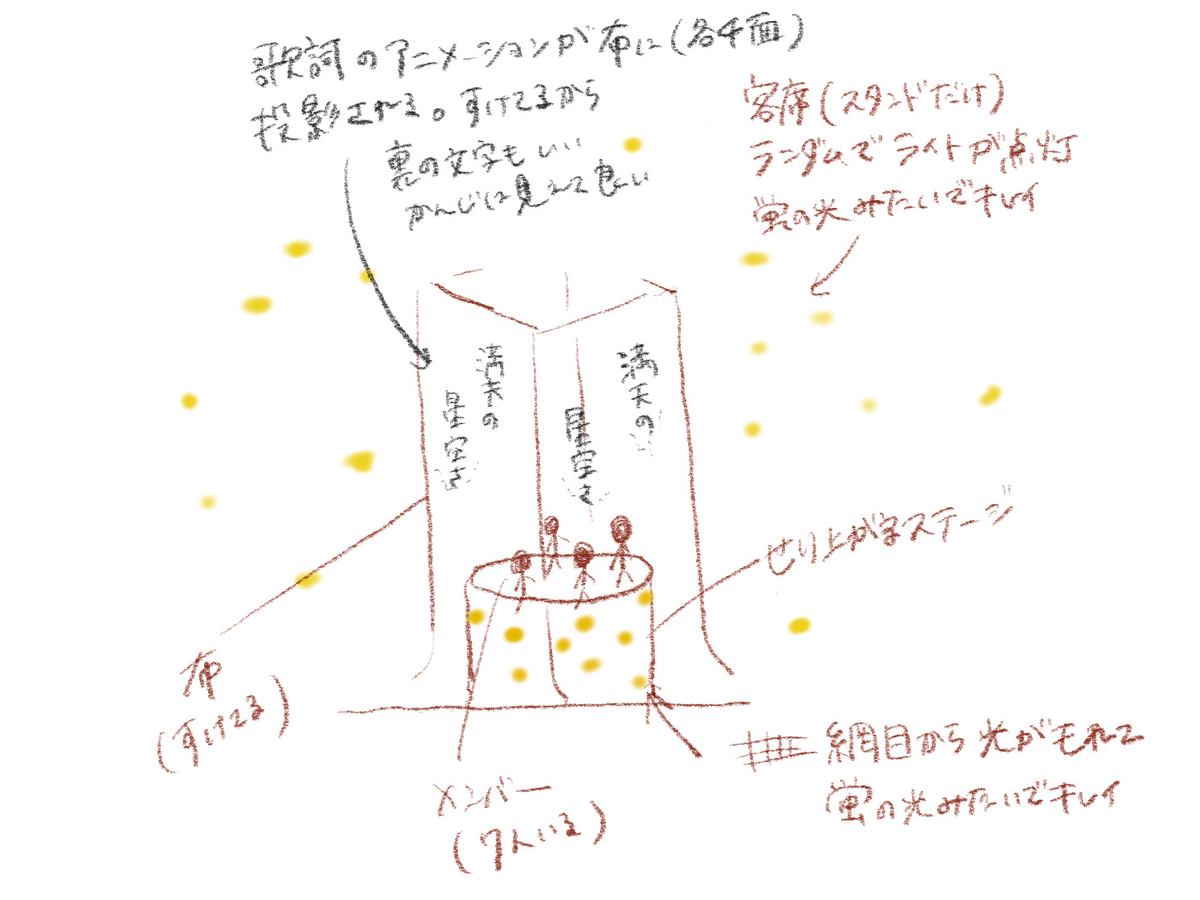 歌詞のアニメーションが布に(各4面)
投影される。すけてるから
裏の文字もいい
かんじに見えて良い
客席(スタンドだけ)
ランダムでライトが点灯
蛍の光みたいでキレイ
満天の
星空を
満天の
星空を
せり上がるステージ
布
(すけてる)
メンバー
(7人いる)
網目から光がもれて
蛍の光みたいでキレイ